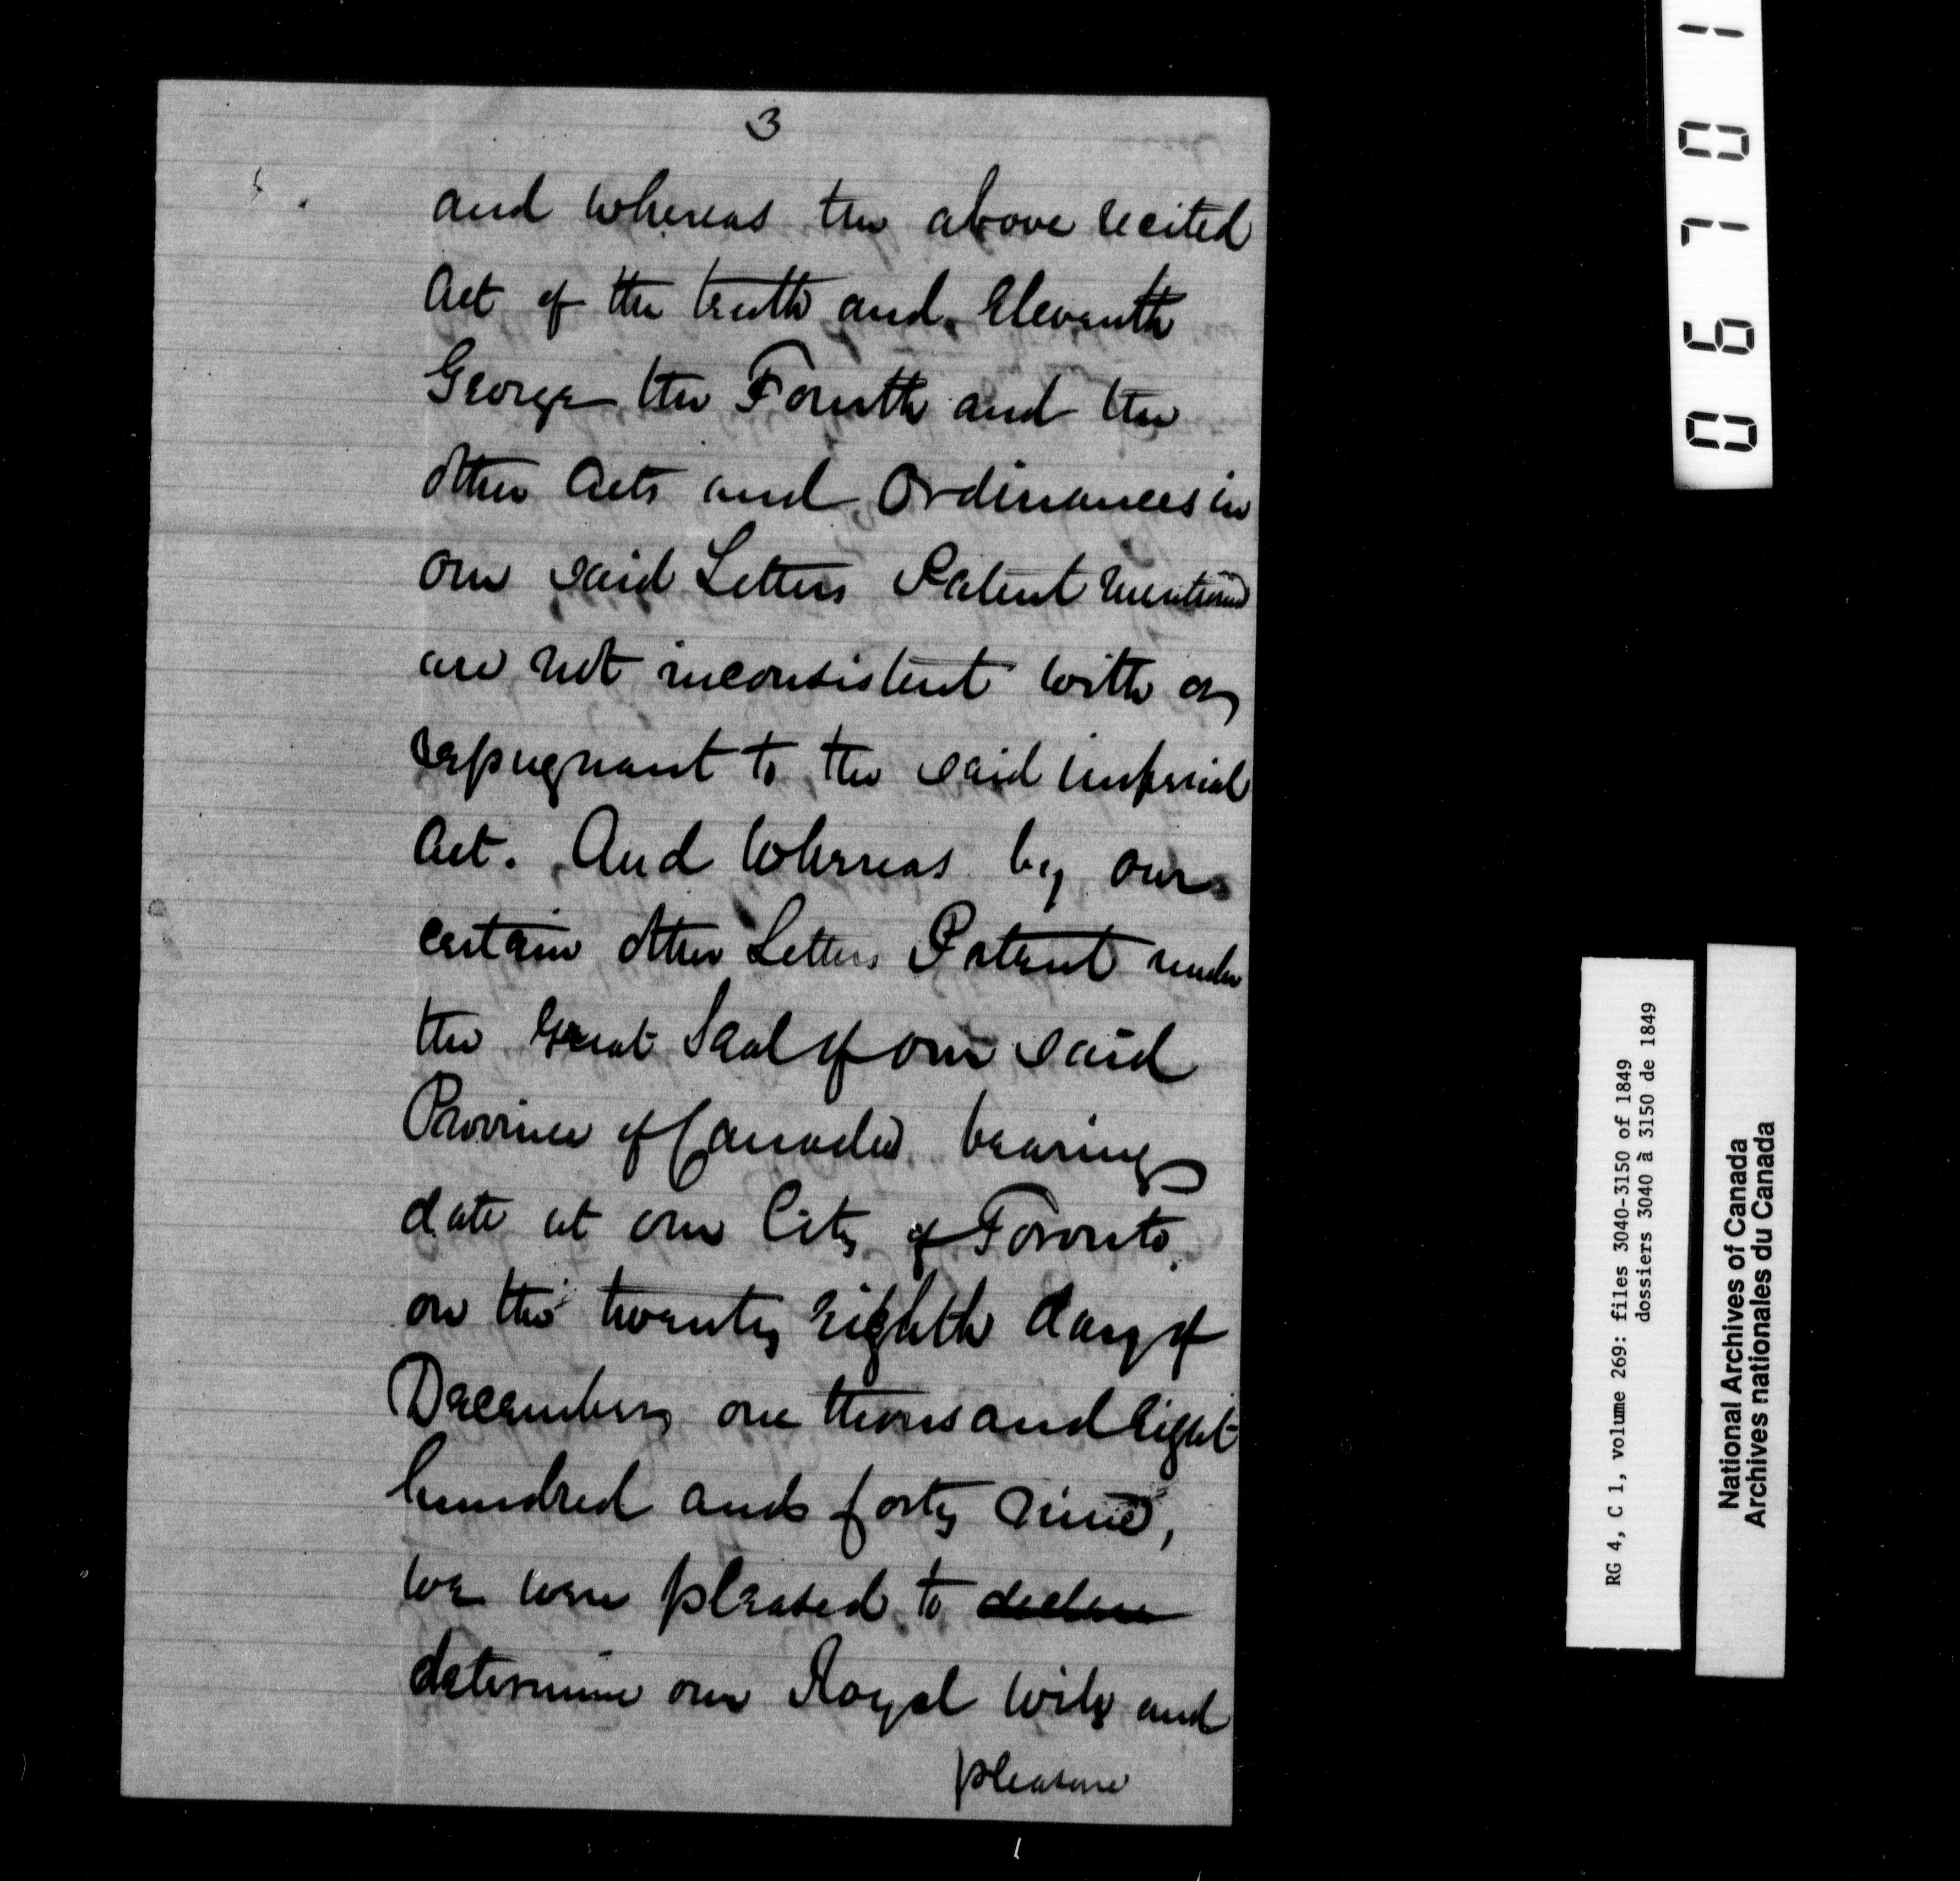 3
and whereas the above recited
Act of the tenth and Eleventh
George the Fourth and the
other Acts and Ordinances in
our said Letters Patent mentioned
are not inconsistent with or
repugnant to the said imperial
Act. And Whereas by our
certain other Letters Patent under
the Great Seal of our said
Province of Canada bearing
date at our City of Toronto
on the twenty eighth day of
December one thousand eight
hundred and forty nine,
we were pleased to declare
determine our Royal Will and
pleasure
06701
RG 4, C 1, volume 269: files 3040-3150 of 1849
dossiers 3040 à 3150 de 1849
National Archives of Canada
Archives nationales du Canada